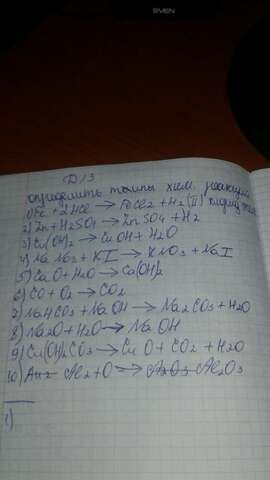 SVEN
Д/З
определить типы хим. реакций
1) Fe + 2HCl → FeCl2 + H2 (II)
2) Zn + H2SO4 → ZnSO4 + H2
3) Cu(OH)2 → CuOH + H2O
4) NaNO3 + KI → KNO3 + NaI
5) CaO + H2O → Ca(OH)2
6) CO + O2 → CO2
7) NaHCO3 + NaOH → Na2CO3 + H2O
8) Na2O + H2O → NaOH
9) Cu(OH)2CO3 → CuO + CO2 + H2O
10) Al2 + O → Al2O3
1)